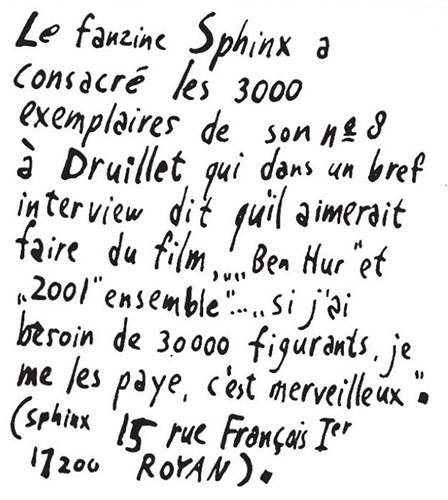 Le fanzine Sphinx a
consacré les 3000
exemplaires de son nº 8
à Druillet qui dans un bref
interview dit qu'il aimerait
faire du film, „„Ben Hur" et
„2001" ensemble"...„si j'ai
besoin de 30000 figurants, je
me les paye, c'est merveilleux".
(Sphinx 15 rue François Ier
17200 ROYAN).